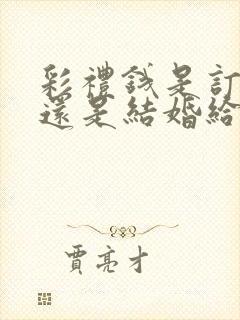 彩禮錢是訂
還是結婚給
賈亮才